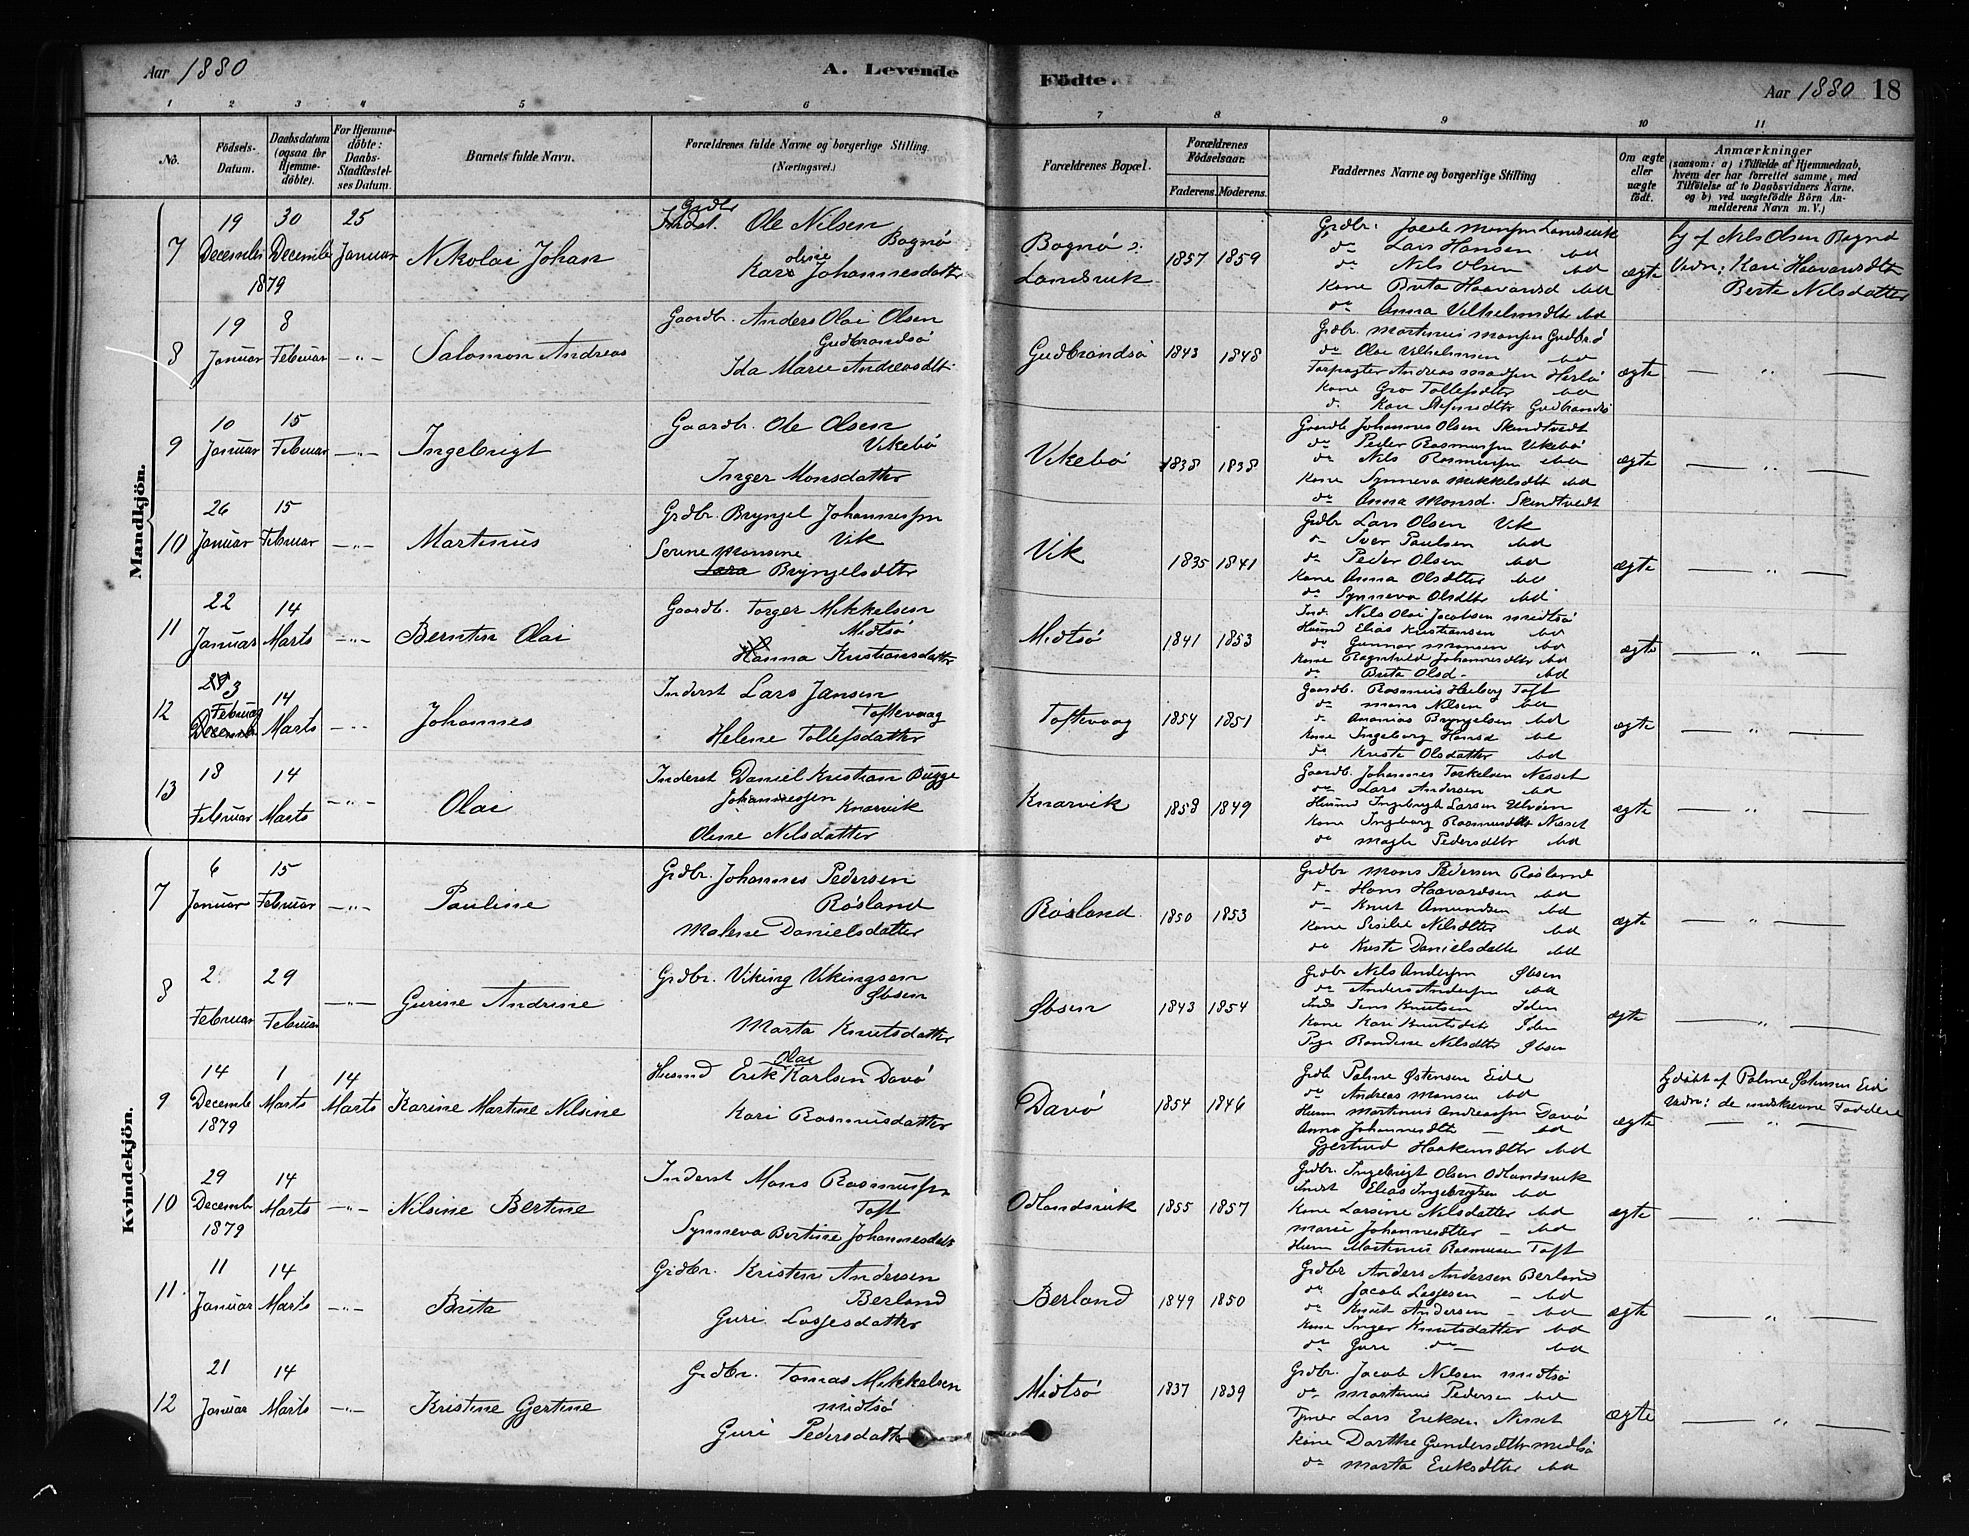 Aar 1880
A. Levende
Födte.
Aar 1880 18
1 2 3 4 5 6 7 8 9 10 11
No.
Födsels-
Datum.
Daabsdatum
(ogsaa for
Hjemme-
döbte).
For Hjemme-
döbte:
Daabs-
Stadfæstel-
ses Datum.
Barnets fulde Navn.
Forældrenes fulde Navne og borgerlige Stilling.
(Næringsvei.)
Forældrenes Bopæl.
Forældrenes
Födselsaar.
Faderens. Moderens.
Faddernes Navne og borgerlige Stilling
Om ægte
eller
uægte
født.
Anmærkninger
(saasom: a) i Tilfælde af Hjemmedaab,
hvem der har forrettet samme, med
Tilföielse af to Daabsvidners Navne.
og b) ved uægtefödte Börn An-
melderens Navn m. V.)
Mandkjön.
7
19 December 1879
30 December
25 Januar
Nikolai Johan
Grdbr Ole Nilsen
Bognø
oline
Johannesdatter
Bognø
Landsvik
1857 1859
Grdbr. Jacob Monsen Landsvik
do Lars Hansen bd
do Nils Olsen bd
Kone Brita Haavarsd bd
do Anna Vilhelmsdtr bd
ægte
af Nils Olsen Bognø
Vidn: Kari Haavardsdtr
Berte Nilsdatter
8
19 Januar
8 Februar
—"—
Salomon Andreas
Gaardb. Anders Olai Olsen
Gudbrandsø
Ida Marie Andreasdtr.
Gudbrandsø
1843 1848
Grdbr. Martinus Monsen Gudbrø
do Olai Vilhelmsen bd
Andreas Madsen Herlø
Kone Gro Tollefsdtr bd
Gudbrandsø
ægte
— " —
9
10 Januar
15 Februar
—"—
Ingebrigt
Gaardb. Ole Olsen
Vikebø
Inger Monsdatter
Vikebø
1838 1838
Gaardb Johannes Olsen Skindtvedt
do Peder Rasmussen Vikebø
do Nils Rasmussen bd
Kone Synneva Mikkelsdtr bd
do Anna Monsd. Skindtvedt
ægte
— " —
10
26 Januar
15 Februar
—"—
Martinus
Grdbr. Bryngel Johannessen
Vik
Serine Monsine
Lara Bryngelsdtr
Vik
1835 1841
Grdbr Lars Olsen Vik
do Iver Paulsen bd
do Peder Olsen bd
Kone Anna Olsdtter bd
do Synneva Olsdtr bd
ægte
— " —
11
22 Januar
14 Marts
—"—
Berntin Olai
Gaardb. Torger Mikkelsen
Midtsø
Hanna Kristiansdatter
Midtsø
1841 1853
Ind. Nils Olai Jacobsen Midtsø
Husmd Elias Kristiansen bd
do Gunnar Monsen bd
Kone Ragnhild Johannesdtr bd
do Brita Olsd. bd
ægte
— " —
12
3
Februar
December
14 Marts
—"—
Johannes
Inderst Lars Jansen
Toftevaag
Helene Tollefsdatter
Toftevaag
1854 1851
Gaardb. Rasmus Toft
do Mons Nilsen bd
do Ananias Bryngelsen bd
Kone Ingeborg Hansd bd
do Kriste Olsdatter bd
ægte
— " —
13
18 Februar
14 Marts
—"—
Olai
Inderst Daniel Kristian Bugge
Johannessen Knarvik
Oline Nilsdatter
Knarvik
1858 1849
Gaardb. Johannes Torkelsen Nesset
do Lars Andersen bd
Husmd Ingebrigt Larsen Ulvøen
Kone Ingeborg Rasmusdtr Nesset
do Magle Pedersdtr bd
ægte
— " —
Kvindekjön.
7
6 Januar
15 Februar
—"—
Pauline
Grdbr. Johannes Pedersen
Røsland
Malene Danielsdatter
Røsland
1850 1853
Grdbr Mons Pedersen Røsland
do Hans Haavardsen bd
do Knut Amundsen bd
Kone Sisilie Nilsdtter bd
do Kriste Danielsdatter bd
ægte
— " —
8
2 Februar
29 Februar
—"—
Gurine Andrine
Grdbr. Viking Vikingsen
Øbsen
Marta Knutsdatter
Øbsen
1843 1854
Grdbr Nils Andersen Øbsen
do Anders Andersen bd
Inds Jens Knutsen Iden
Kone Kari Knutsdtr Iden
Pige Randine Nilsdtr Øbsen
ægte
— " —
9
14 December 1879
1 Marts
14 Marts
Karine Martine Nilsine
Husmd Erik Olai Karlsen Davø
Kari Rasmusdatter
Davø
1854 1846
Grdb Palme Østensen Eide
do Andreas Monsen bd
Husm Martinus Andreassen Davø
Anna Johannesdtr — bd
Gjertrud Haakensdtr bd
ægte
hj døbt af Palme Østensen Eide
Vidn: de indskrevne Faddere
— " —
10
29 December 1879
14 Marts
—"—
Nilsine Bertine
Inderst Mons Rasmussen
Toft
Synneva Bertine Johannesdatt
Odlandsvik
1855 1857
Grdbr. Ingebrigt Olsen Odlandsvik
Indst Elias Ingebrigtsen bd
Kone Larsine Nilsdatter bd
Marie Johannesdtter — bd
Husm Martinus Rasmusen Toft
ægte
— " —
11.
11 Januar
14 Marts
—"—
Brita
Grdbr. Kristen Andersen
Berland
Guri Lassesdatter
Berland
1849 1850
Grdbr Anders Andersen Berland
do Jacob Lassesen — bd
do Knut Andersen — bd
Kone Inger Knutsdatter bd
do Guri do — bd
ægte
— " —
12
21 Januar
14 Marts
—"—
Kristine Gjertine
Grdbr. Tomas Mikkelsen
Midtsø
Guri Pedersdatter
Midtsø
1837 1839
Grdbr. Jacob Nilsen Midtsø
do Martinus Pedersen bd
Lars Eriksen Nesset
Kone Dorthe Gundersdtr Midtsø
do Marta Eriksdtter bd
ægte
— " —